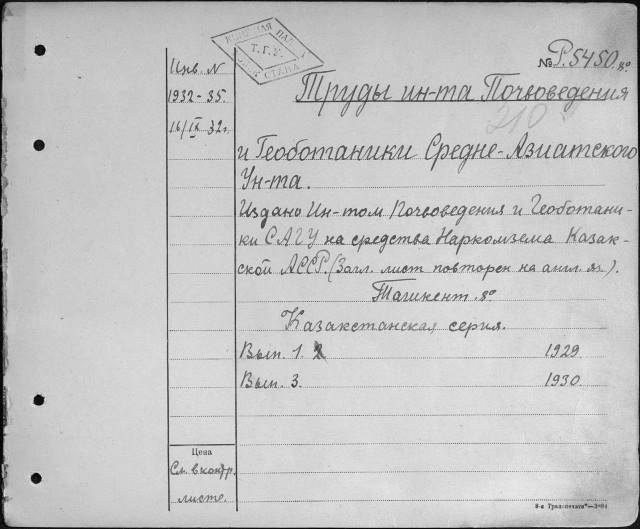 КНИЖНАЯ ПАЛ
Т.Г.У.
СТАНА
№ Р.5450 8º
Инв. N
1932-35.
16/IX 32г.
Труды ин-та Почвоведения
210
и Геоботаники Средне-Азиатского
Ун-та.
Издано Ин-том Почвоведения и Геоботани-
ки САГУ на средства Наркомзема Казак-
ской АССР. (Загл. лист повторен на англ. яз).
Ташкент. 8º
Казакстанская серия.
Вып. 1. 2 1929
Вып. 3. 1930.
Цена
См. в контр.
листе.